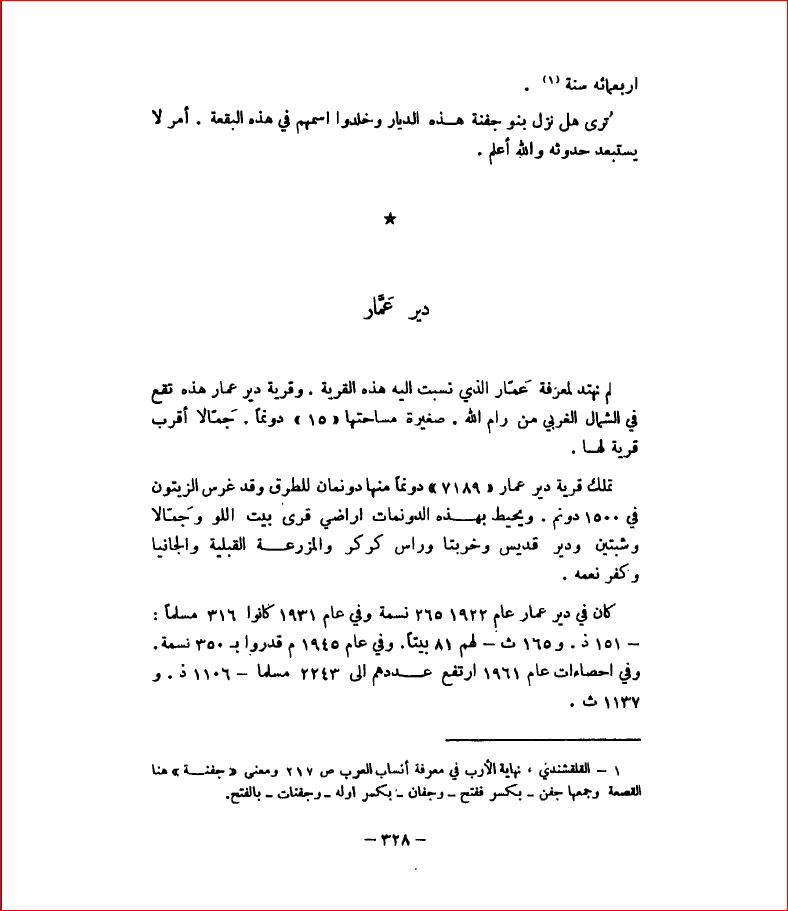 اربعمائه سنة (١) .
تُرى هل نزل بنو جفنة هـذه الديار وخلدوا اسمهم في هذه البقعة . أمر لا
يستبعد حدوثه والله أعلم .
★
دير عَمَّار
لم نهتد لمعرفة عَمّار الذي نسبت اليه هذه القرية . وقرية دير عمار هذه تقع
في الشمال الغربي من رام الله . صغيرة مساحتها «١٥» دونماً . جَمّالا أقرب
قرية لهـا .
تملك قرية دير عمار «٧١٨٩» دونماً منها دونمان للطرق وقد غرس الزيتون
في ١٥٠٠ دونم . ويحيط بهـذه الدونمات اراضي قرى بيت اللو وجَمّالا
وشبتين ودير قديس وخربتا وراس كركر والمزرعـة القبلية والجانيا
وكفر نعمه .
كان في دير عمار عام ١٩٢٢ ٢٦٥ نسمة وفي عام ١٩٣١ كانوا ٣١٦ مسلماً :
– ١٥١ ذ . و ١٦٥ ث – لهم ٨١ بيتاً. وفي عام ١٩٤٥ م قدروا بـ ٣٥٠ نسمة.
وفي احصاءات عام ١٩٦١ ارتفع عـددهم الى ٢٢٤٣ مسلما – ١١٠٦ ذ . و
١١٣٧ ث .
١ – القلقشندي ، نهاية الأرب في معرفة أنساب العرب ص ٢١٧ ومعنى «جفنـة» هنا
القصعة وجمعها جفن – بكسر ففتح – وجفان – بكسر اوله – وجفنات – بالفتح.
– ٣٢٨ –